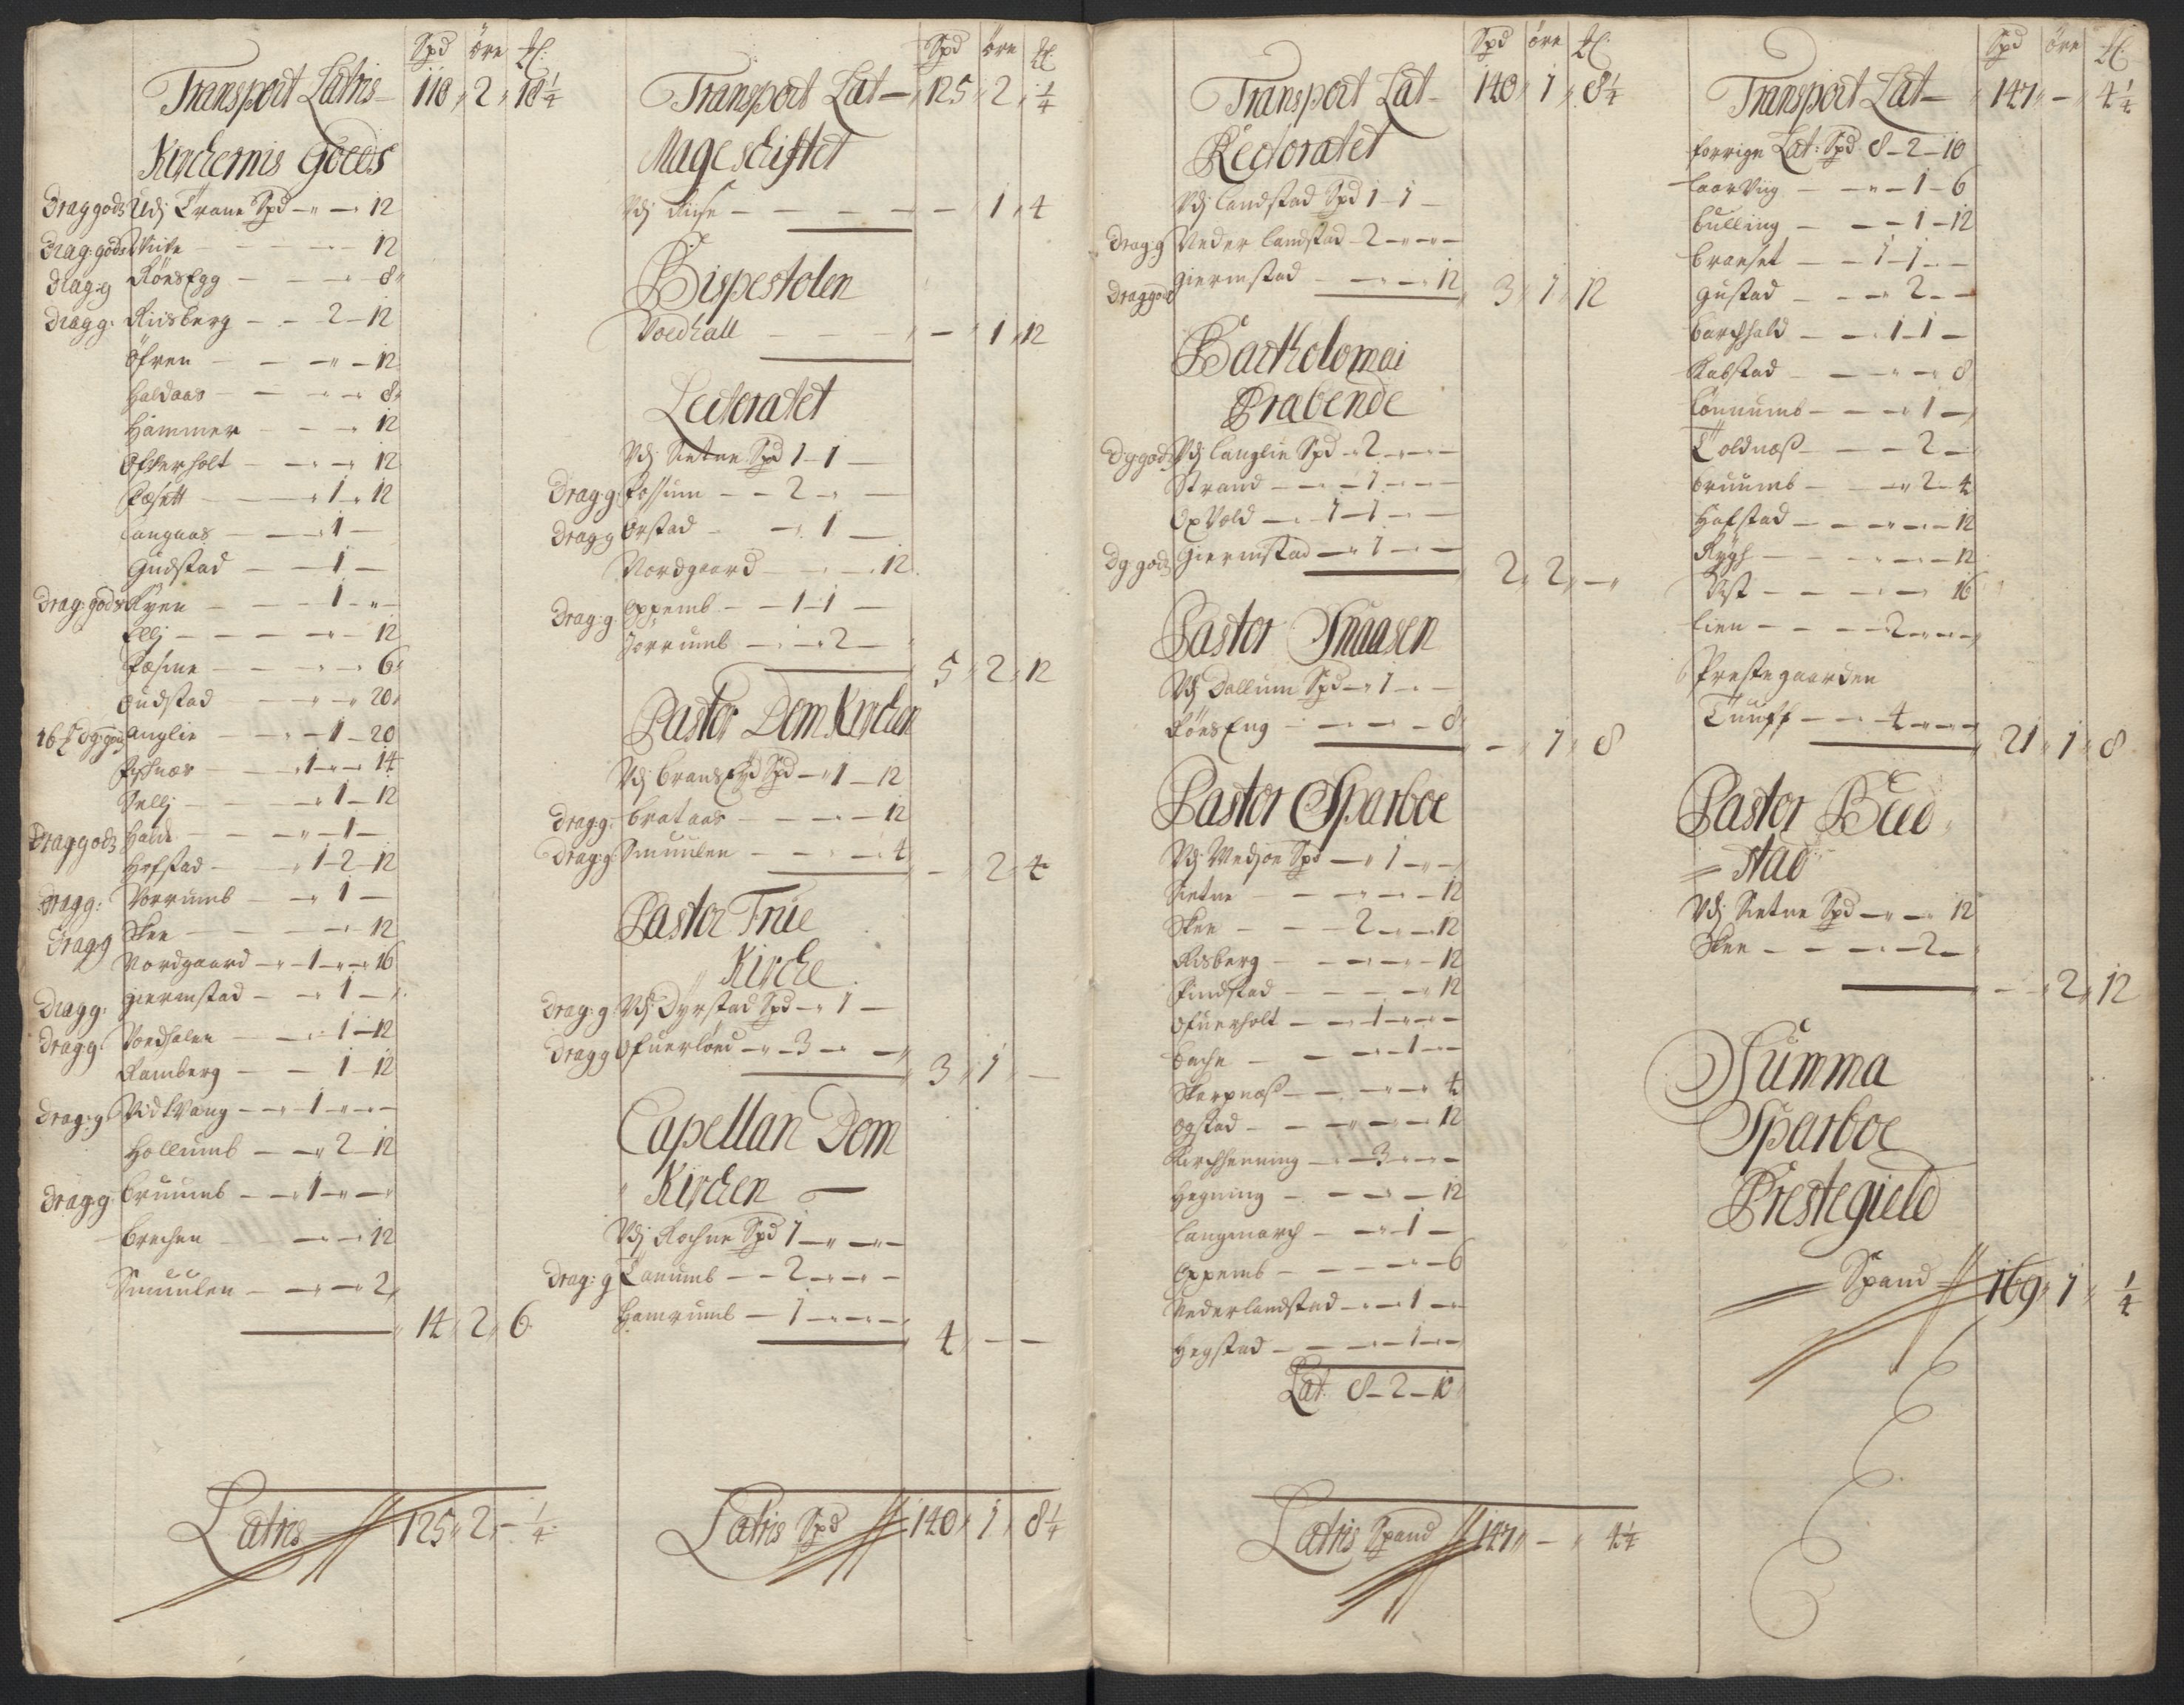 Spd öre
Transport Latris 110 2 18 1/4
Kirchernis Goeds
Draggods Udj Trane Spd - - 12
Drag: gods Viike - - 12
Drag:g RönsEgg - - 8
Dragg: Riisberg - 2 - 12
Öfren - - 12
Haldaas - - 8
Hammer - - 12
Ofverholt - - 12
Fæsett - 1 - 12
Langaas - 1 -
Gudstad - 1 -
Drag: gods Ryen - 1 - -
Ellj - - 12
Fæsme - - 6
Gudstad - - 20
Langlie - 1 - 20
Fischnæs - 1 - 14
Sellj - 1 - 12
Draggods Halde - 1 -
Hofstad - 1 - 2 - 12
Dragg: Vorrumb - 1 -
Dragg Skee - - 12
Nordgaard - 1 - 16
Dragg: Giermstad - 1 -
Dragg Voedhalen - 1 - 12
Ramberg - 1 - 12
Drag:g Vidtvang - 1 - -
Hollumb - 2 - 12
Drag:g Bruumb - 1 - -
Brechen - - 12
Smuulen - - 2
14 2 6
Latris 125 2 - 1/4
Spd öre
Transport Lat - 125 2 1/4
Mageschiftet
Vdj Riise - - 1 4
Bispestolen
Voedhall - - 1 12
Lectoratet
Vdj Sietne Spd 1 - 1 -
Drag:g: Fossum - 2 - -
Dragg Orstad - 1 -
Nordgaard - - 12
Drag:g: Oppemb - 1 - 1 -
Jorrumb - 2 -
5 2 12
Pastor Dom Kirchen
Vdj Brandsfyd Spd - 1 - 12
Drag:g: Brataas - - 12
Drag:g: Smuulen - - 4
- 2 4
Pastor Frue
Kirche
Drag: g: Vdj Dyrstad Spd - 1 -
Dragg Ofuerlöed - 3 - -
3 1 -
Capellan Dom
Kirchen -
Vdj Rochne Spd 1 - - -
Drag: g Tanumb - 2 - - -
Hamrumb - 1 - - -
4 - -
Latris Spd 140 1 8 1/4
Spd öre
Transport Lat - 140 1 8 1/4
Rectoratet
Vdj Landstad Spd 1 - 1 -
Drag:g Neder Landstad - 2 - - -
Draggods Giermstad - - 12 3 1 12
Bartholomai
Prabende
Dggods Vdj Langlie Spd - 2 - - -
Strand - 1 - - -
OpVold - 1 - 1 - -
Dg gods Giermstad - 1 - - 2 2 -
Pastor Snaasen
Vdj Dallum Spd - 1 - -
RönsEng - - - 8
- 1 8
Pastor Sparboe
Vdj Medjoe Spd - 1 - -
Sietne - - 12
Skee - 2 - - 12
Risberg - - 12
Findstad - - 12
Ofuerholt - 1 - - -
Bache - 1 - -
Skerpnæss - - 4
Ogstad - - 12
Kirchhenning - 3 - - -
Hegning - - 12
Langmarch - 1 -
Oppemb - - 6
Nederlandstad - 1 - -
Hegstad - 1 - -
Lat: 8 - 2 - 10
Latris Spand 147 - 4 1/4
Spd öre
Transport Lat - 147 - 4 1/4
Forrige Lat: Spd 8 - 2 - 10
LaarViig - 1 - 6
Bulling - 1 - 12
Bræset - 1 - 1 - -
Gustad - 2 - -
Barchhald - 1 - 1 -
Kabstad - - 8
Lönnumb - 1 -
Toldnæss - 2 -
Bruumb - 2 - 4
Hafstad - - 12
Rygh - - 12
Vist - - 16
Lien - 2 - - -
Prestegaarden
Tuuff - 4 - - -
21 1 8
Pastor Bud
= stad
Vdj Sietne Spd - - 12
Skee - 2 -
- 2 12
Summa
Sparboe
Prestegield
Spand 169 1 1/4